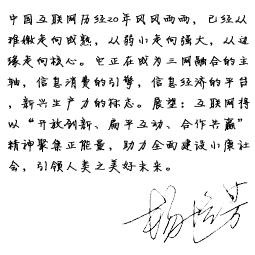 中国互联网历经20年风风雨雨，已经从
稚嫩走向成熟，从弱小走向强大，从边
缘走向核心。它正在成为三网融合的主
轴，信息消费的引擎，信息经济的平台
，新兴生产力的标志。展望：互联网将
以“开放创新、扁平互动、合作共赢”
精神聚集正能量，助力全面建设小康社
会，引领人类之美好未来。
杨培芳